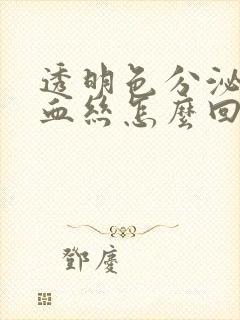 透明色分泌
血絲怎麼回
鄧慶